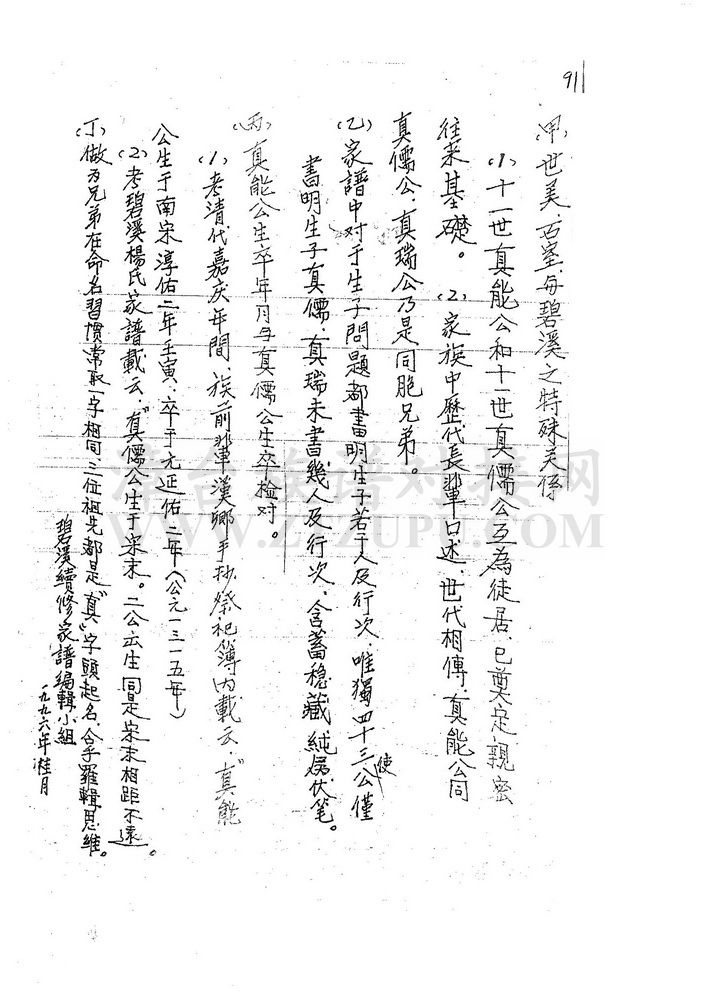 91
(甲)世美、古崟与碧溪之特殊关係
(1)十一世真能公和十一世真儒公互為徒居、已奠定親密
往来基礎。(2)家族中歷代長輩口述、世代相傳、真能公同
真儒公、真瑞公乃是同胞兄弟。
(乙)家譜中对于生子問題都書明生子若干人及行次、唯獨四十三公僅
書明生子真儒、真瑞未書幾人及行次、含蓄穏藏純屬伏笔。
使
(丙)真能公生卒年月与真儒公生卒检对。
(1)考清代嘉庆年間、族前輩漢卿手抄祭祀簿内載云、“真能
公生于南宋淳佑二年壬寅、卒于元延佑二年(公元一三一五年)
(2)考碧溪楊氏家譜載云、“真儒公生于宋末。二公出生同是宋末相距不遠。
(丁)做为兄弟在命名習慣常取一字相同、三位祖先都是“真”字頭起名、合乎羅輯思維。
碧溪續修家譜编輯小組
一九九六年桂月
清台族谱对接网
WWW.ZTZUPU.COM